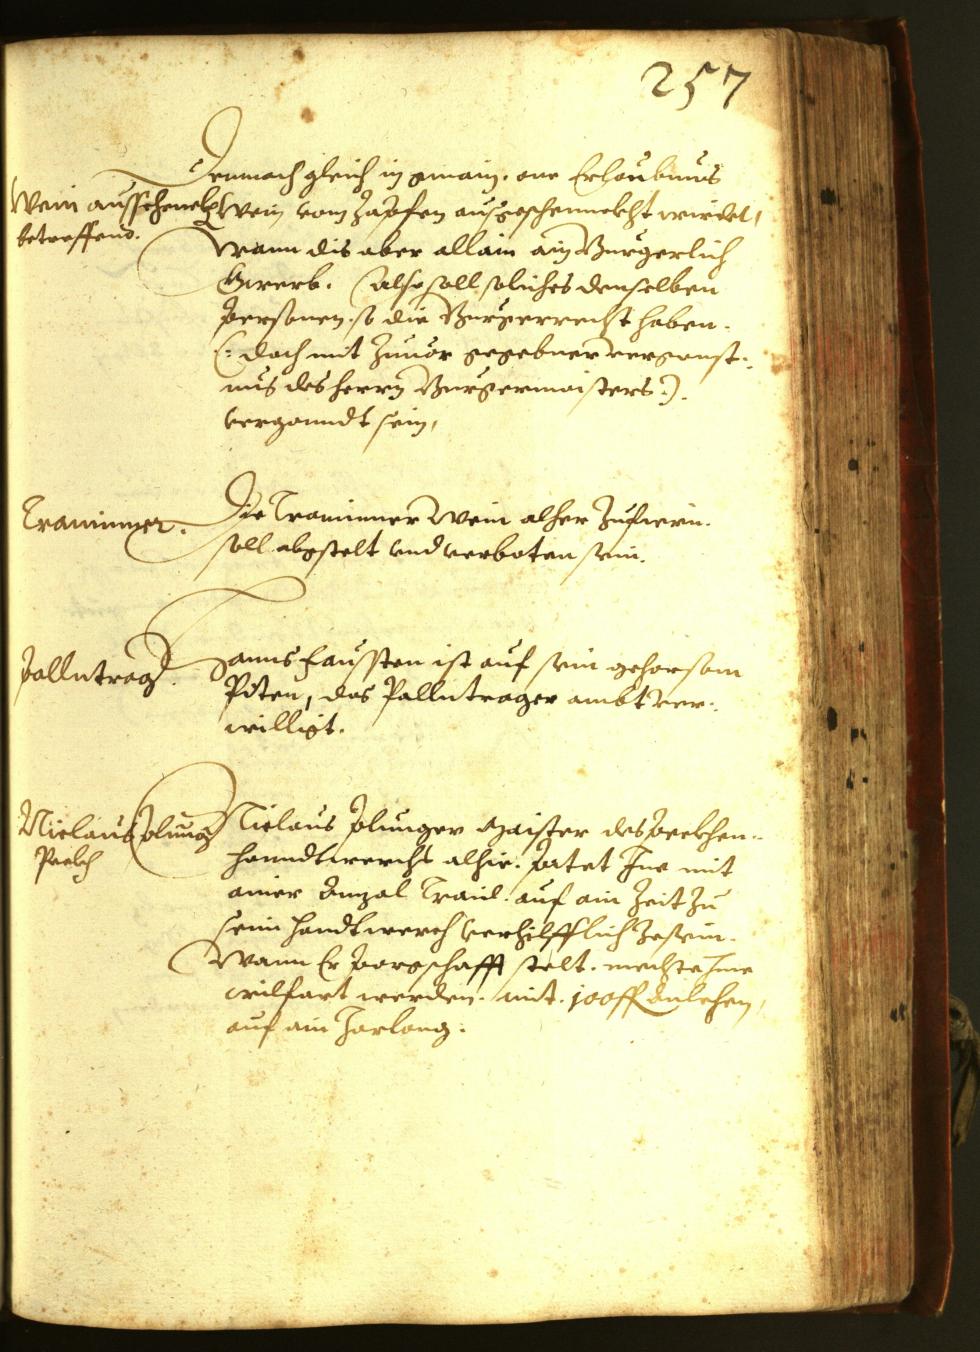 257
Wein ausschenckh
betreffend.
Demnach gleich in gmain. one Erlaubnus
Wein vom Zapfen ausgeschennckht wirdet,
Wann dis aber allain ain Burgerlich
Gwerb. Also soll soliches denselben
Personen. so die Burgerrecht haben.
(: doch mit Zuuor gegebner vergonst-
nus des herrn Burgermaisters :).
vergonndt sein,
Traminner.
Die Traminner Wein alher Zufieren.
soll abgstelt vnd verboten sein.
Pallntrag
Hanns Faussten ist auf sein gehorsam
Piten, das Pallntrager ambt ver-
willigt.
Niclaus Plung
Peckh
Niclaus Plunger Maister des Peckhen-
hanndtwerchs alhie. Pitet Ine mit
ainer Anzal Traid. auf ain Zeit Zu
seim handtwerch verhilfflich Zesein.
Wann Er Porgschafft stelt. mechte Ime
wilfart werden. mit. 100 ff Anlehen,
auf ain Jarlang.